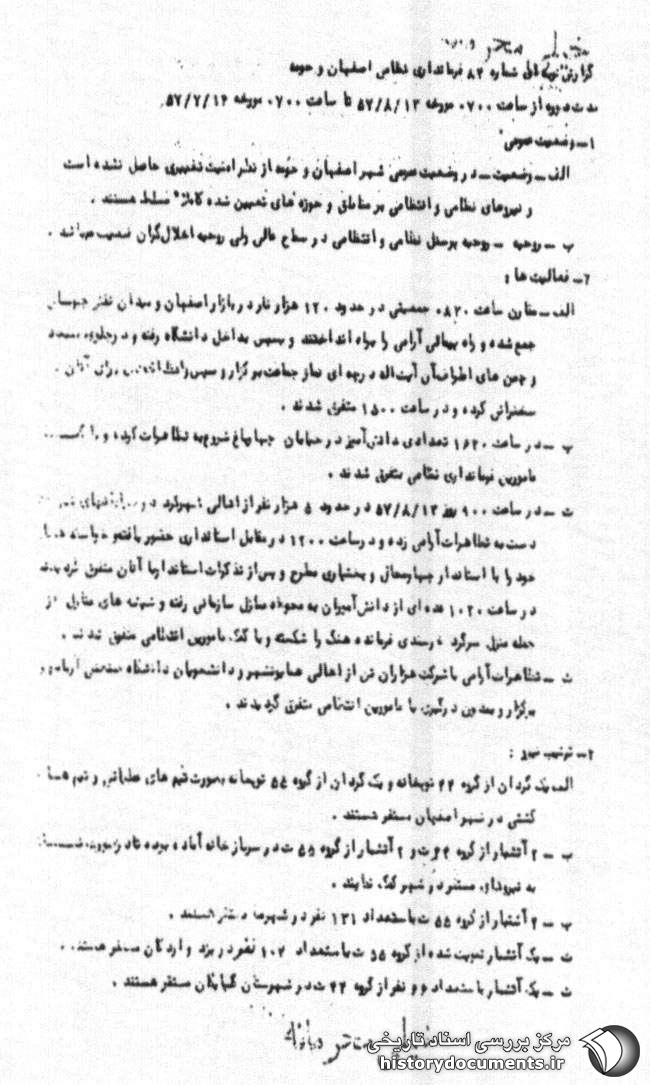 خیلی محرمانه
گزارش نوبه ای شماره ۸۲ فرمانداری نظامی اصفهان و حومه
مدت دوره از ساعت ۰۷۰۰ مورخه ۵۷/۸/۱۳ تا ساعت ۰۷۰۰ مورخه ۵۷/۷/۱۴
۱- وضعیت عمومی
الف - وضعیت - در وضعیت عمومی شهر اصفهان و حومه از نظر امنیت تغییری حاصل نشده است
و نیروهای نظامی و انتظامی بر مناطق و حوزه های تعیین شده کاملاً مسلط هستند .
ب - روحیه - روحیه پرسنل نظامی و انتظامی در سطح عالی ولی روحیه اخلال‌گران ضعیف میباشد .
۲- فعالیت ها :
الف - مقارن ساعت ۰۸۲۰ جمعیتی در حدود ۱۲۰ هزار نفر در بازار اصفهان و میدان نقش
جمع شده و راه پیمائی آرامی را براه انداختند و سپس بداخل دانشگاه رفته و در جلوی مسجد
و چمن های اطراف آن آیت اله درچه ای نماز جماعت برگزار و سپس برای آنان
سخنرانی کرده و در ساعت ۱۵۰۰ متفرق شدند .
ب - در ساعت ۱۶۲۰ تعدادی دانش‌آموز در خیابان چهارباغ شروع به تظاهرات کرده و با
مامورین فرمانداری نظامی متفرق شدند .
ت - در ساعت ۹۰۰ روز ۵۷/۸/۱۳ در حدود ۵ هزار نفر از اهالی شهرکرد در
دست به تظاهرات آرامی زده و در ساعت ۱۲۰۰ در مقابل استانداری حضور یافته و خواسته های
خود را با استاندار چهارمحال و بختیاری مطرح و پس از تذکرات استاندار با آنان متفرق گردیدند
در ساعت ۱۰۲۰ عده ای از دانش‌آموزان به محوطه منازل سازمانی رفته و شیشه های منازل از
جمله منزل سرگرد خرسندی فرمانده هنگ را شکسته و با کمک مامورین انتظامی متفرق شدند .
ث - تظاهرات آرامی با شرکت هزاران تن از اهالی همایونشهر و دانشجویان دانشگاه صنعتی آریامهر
برگزار و بدون درگیری با مامورین انتظامی متفرق گردیدند .
۳- ترتیب نیرو :
الف یک گردان از گروه ۴۴ توپخانه و یک گردان از گروه ۵۵ توپخانه بصورت تیم های عملیاتی و تیم های
گشتی در شهر اصفهان مستقر هستند .
ب - ۲ آتشبار از گروه ۴۴ ت و ۲ آتشبار از گروه ۵۵ ت در سربازخانه آماده بوده تا در صورت
به نیروهای مستقر در شهر کمک نمایند .
پ - ۲ آتشبار از گروه ۵۵ ت با استعداد ۱۳۱ نفر در شهرضا مستقر هستند .
ت - یک آتشبار تقویت شده از گروه ۵۵ ت با استعداد ۱۰۲ نفر در یزد و اردکان مستقر هستند .
ث - یک آتشبار با استعداد ۶۶ نفر از گروه ۴۴ ت در شهرستان گلپایگان مستقر هستند .
خیلی محرمانه
مرکز بررسی اسناد تاریخی
historydocuments.ir